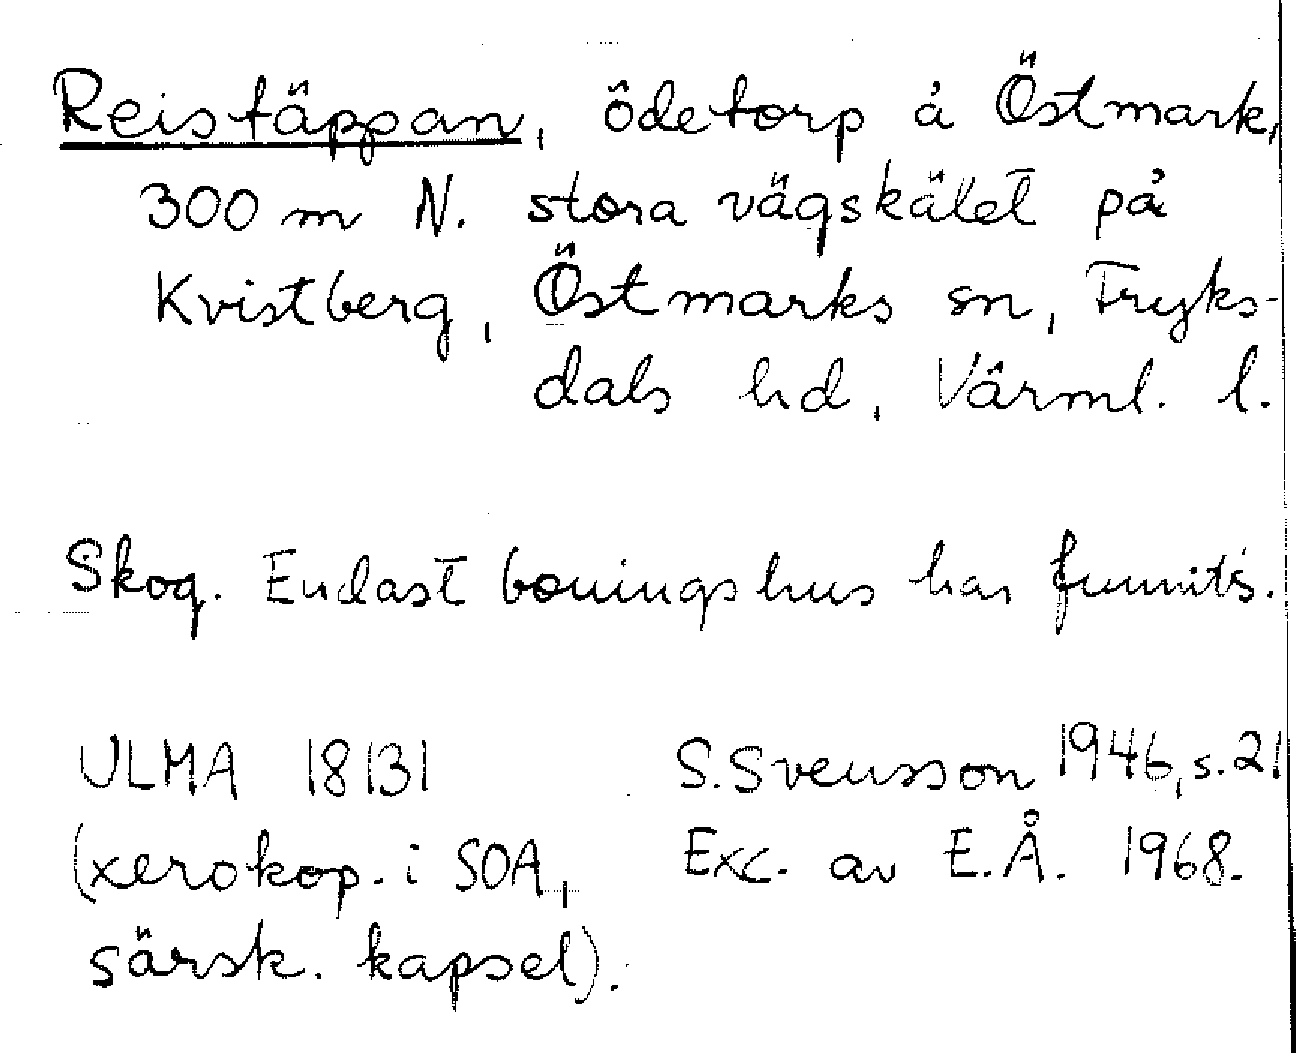 Reistäppan, ödetorp å Östmark,
300 m N. stora vägskälet på
Kvistberg, Östmarks sn, Fryks-
dals hd, Värml. l.
Skog. Endast boningshus har funnits.
ULMA 18131
(xerokop. i SOA,
särsk. kapsel).
S. Svensson 1946, s. 21
Exc. av E.Å. 1968.